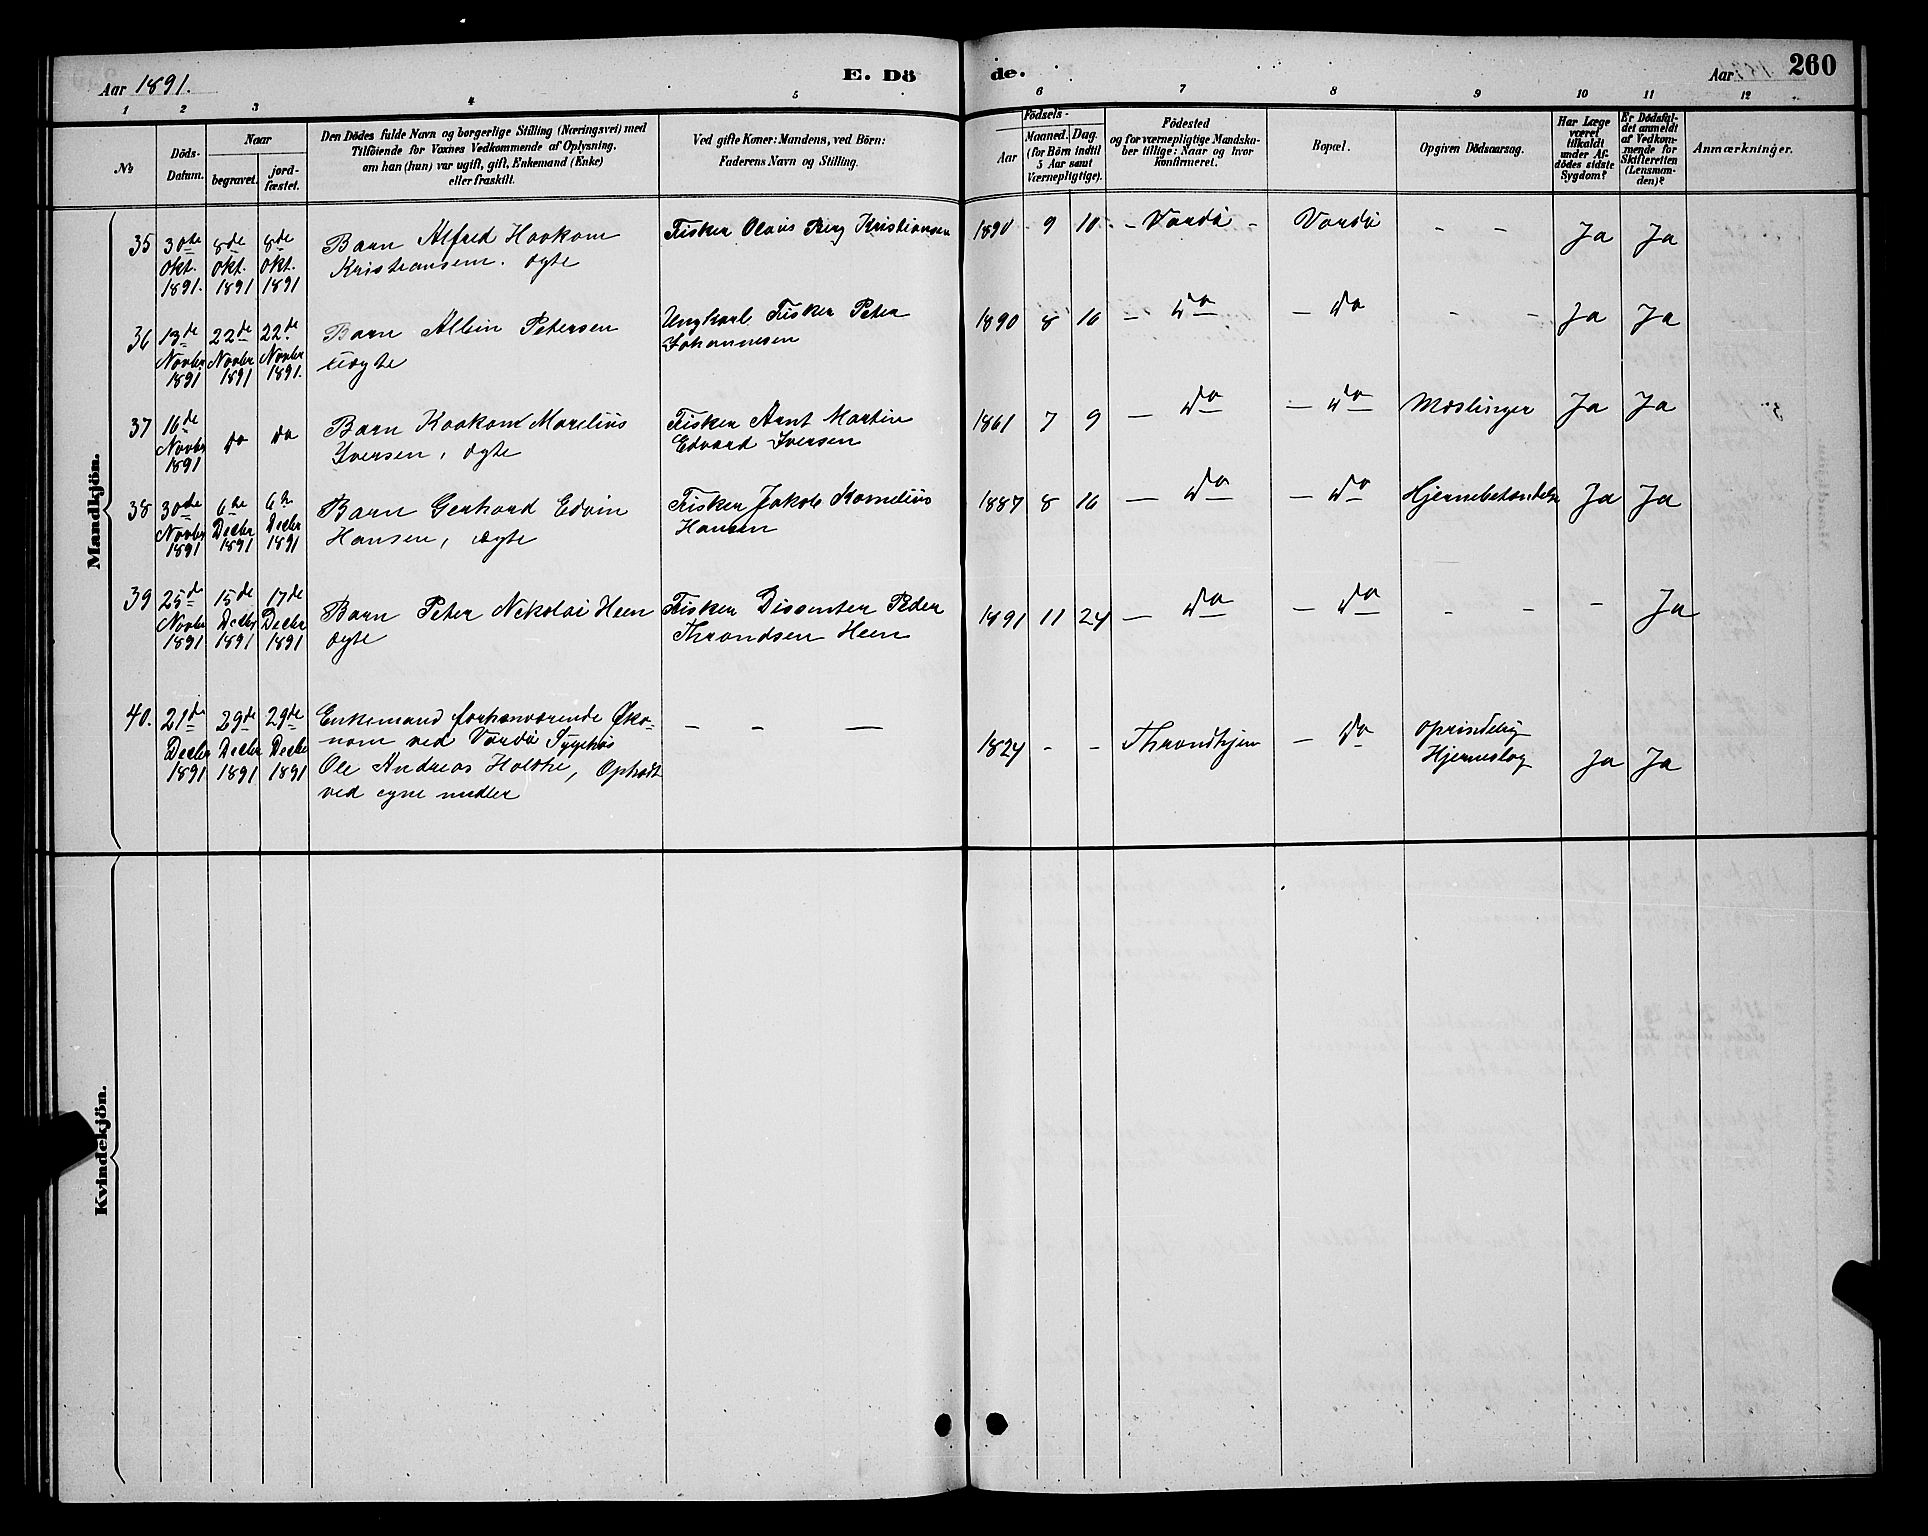 Aar 1891.
E. Dö
de.
Aar
260
1
2
3
4
5
6
7
8
9
10
11
12
No
Döds-
Datum.
Naar
begravet.
jord-
fæstet.
Den Dödes fulde Navn og borgerlige Stilling (Næringsvei) med
Tilföiende for Voxnes Vedkommende af Oplysning.
om han (hun) var ugift, gift, Enkemand (Enke)
eller fraskilt.
Ved gifte Koner: Mandens, ved Börn:
Faderens Navn og Stilling.
Födsels-
Aar
Maaned.
Dag.
(for Börn indtil
5 Aar samt
Værnepligtige).
Födested
og for værnepligtige Mandska-
ber tillige: Naar og hvor
konfirmeret.
Bopæl.
Opgiven Dödsaarsag.
Har Læge
været
tilkaldt
under Af-
dödes sidste
Sygdom?
Er Dödsfal-
det anmeldt
af Vedkom-
mende for
Skifteretten
(Lensman-
den)?
Anmærkninger.
Mandkjön.
35
30de
Okt.
1891.
8de
Okt.
1891
8de
Okt.
1891
Barn Alfred Haakom
Kristiansen. ægte
Fisker Olaus Berg Kristiansen
1890 9 10 - Vardö - Vardö - - Ja Ja
36
13de
Novbr
1891
22de
Novbr
1891
22de
Novbr
1891.
Barn Albin Petersen
uægte
Ungkarl Fisker Peter
Johannesen
1890 8 16 - Do - Do - - Ja Ja
37
16de
Novbr
1891
Do
Do
Barn Haakom Marelius
Iversen, ægte
Fisker Arnt Martin
Edvard Iversen
1861 7 9 - Do - Do Mæslinger Ja Ja
38
30de
Novbr
1891
6te
Decbr
1891
6te
Decbr
1891
Barn Gerhard Edvin
Hansen, ægte
Fisker Jakob Kornelius
Hansen
1887 8 16 - Do - Do Hjernebetændelse Ja Ja
39
25de
Novbr
1891
15de
Decbr
1891
17de
Decbr
1891
Barn Peter Nikolai Heen
ægte
Fisker Dissenter Peder
Throndsen Heen
1891 11 24 - Do - Do - - - Ja
40.
21de
Decbr
1891
29de
Decbr
1891
29de
Decbr
1891
Enkemand forhenværende Øko-
nom ved Vardö Sygehus
Ole Andreas Holthe, Opholdt
ved egne midler
- - -
1824 - - Throndhjem - Do
oprindelig
Hjerneslag
Ja Ja
Kvindekjön.